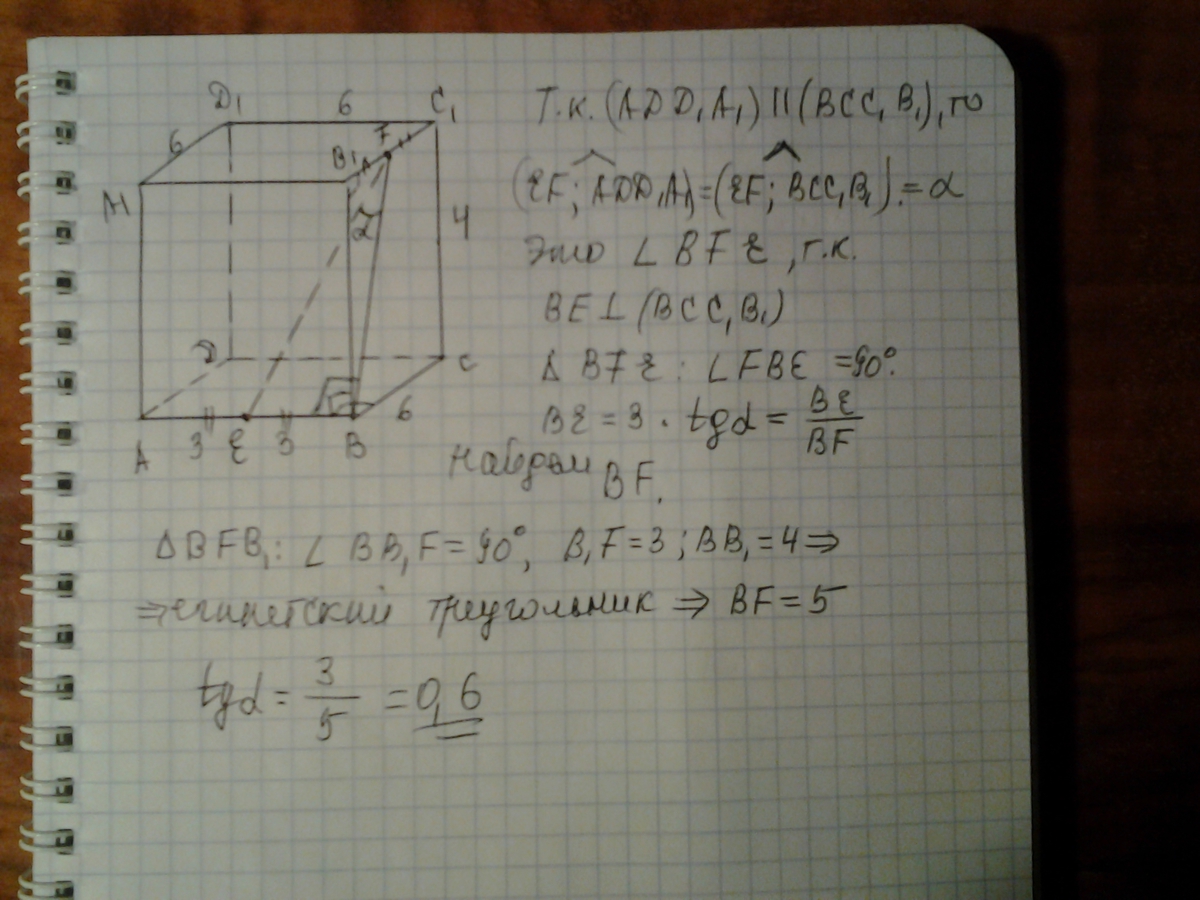 D₁ 6 C₁
6 F
B₁
A₁
α 4
D C
6
A 3 E 3 B
Т.к. (ADD₁A₁) || (BCC₁B₁), то
(EF; ADD₁A₁) = (EF; BCC₁B₁) = α
Это ∠BFE, т.к.
BE ⊥ (BCC₁B₁)
Δ BFE : ∠FBE = 90°.
BE = 3 . tgα = BE/BF
Найдём BF.
ΔBFB₁: ∠ BB₁F = 90°, B₁F = 3 ; BB₁ = 4 ⇒
⇒ египетский треугольник ⇒ BF = 5
tgα = 3/5 = 0,6